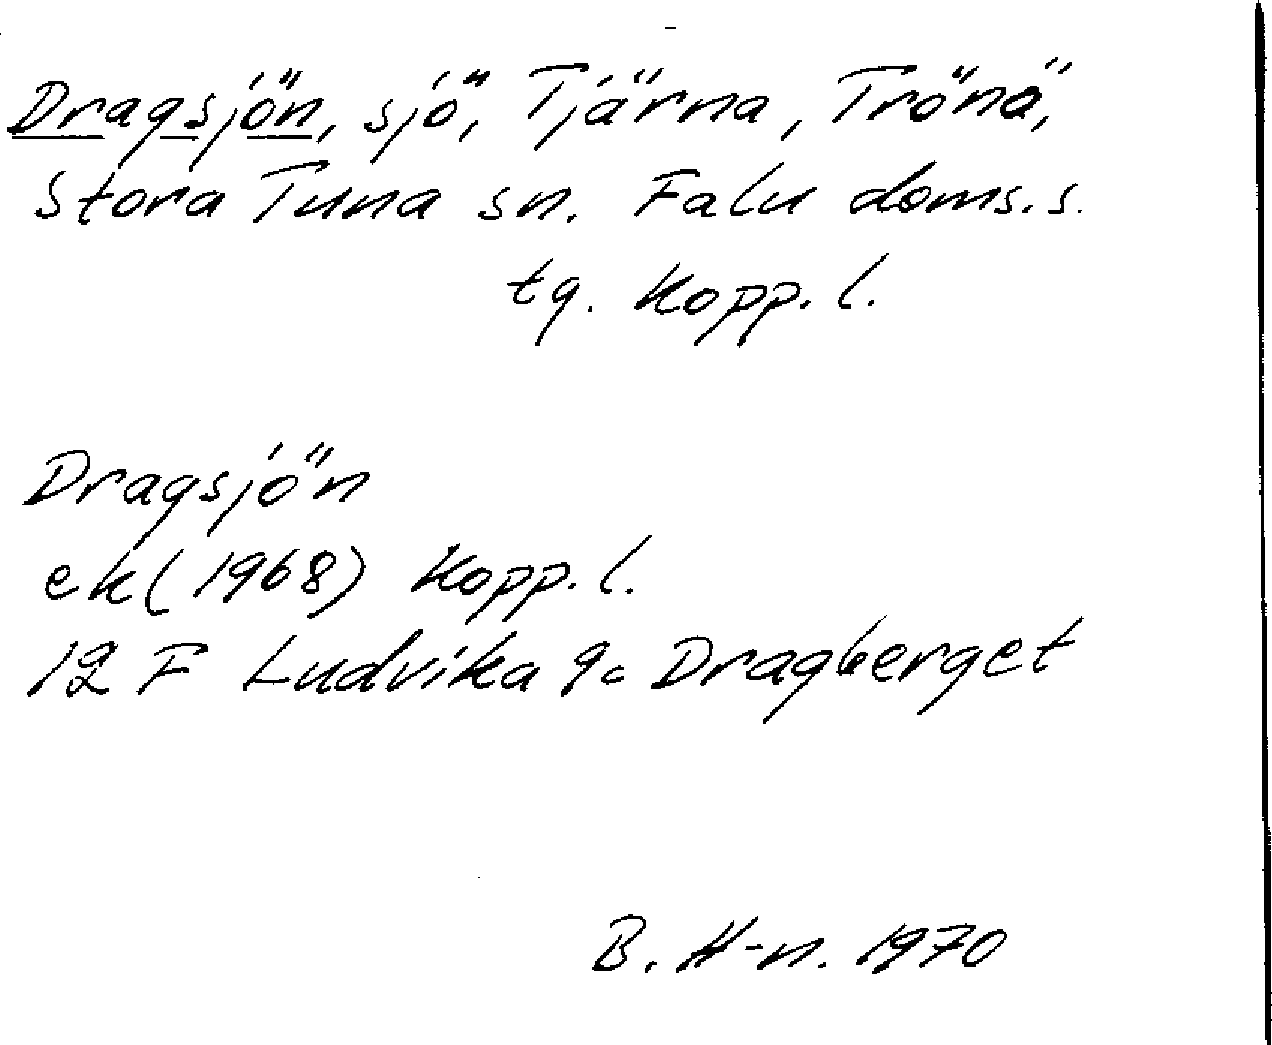 Dragsjön, sjö, Tjärna, Trönö,
Stora Tuna sn. Falu doms.s.
tg. Kopp.l.
Dragsjön
ek(1968) Kopp.l.
12 F Ludvika 9c Dragberget
B. H-n. 1970